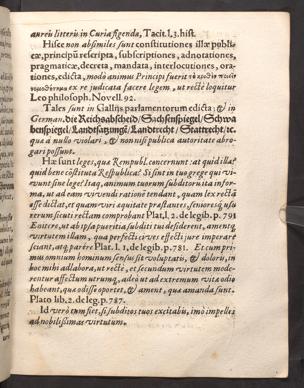 aureis litteris in Curia figenda, Tacit. l. 3. hist.
Hisce non absimiles sunt constitutiones illæ publi-
cæ, principum rescripta, subscriptiones, adnotationes,
pragmaticæ, decreta, mandata, interlocutiones, ora-
tiones, edicta, modò animus Principis fuerit
ex re judicata facere legem, ut rectè loquitur
Leo philosoph. Novell. 92.
Tales sunt in Gallijs parlamentorum edicta; & in
German. die Reichsabscheid/Sachsenspiegel/Schwa
benspiegel/Landtsatzung/Landtrecht/Stattrecht/rc.
quæ à nullo violari, & non nisi publica autoritate abro-
gari possunt.
Hæ sunt leges, quæ Rempubl. concernunt: at quid illa?
quid bene cōstituta Respublica? Si sint in tuo grege qui vi-
vunt sine lege? Itaq, animum tuorum subditorū ita infor-
ma, ut ad eam vivendi rationē tendant, quam lex rectā
esse dictat, et quam viri æquitate præstantes, seniores q́ usu
rerum scuti rectam comprobant Plat. l. 2. de legib. p. 791
Enitere, ut ab ipsa pueritia subditi tui desiderent, amentq
virtutem illam, qua perfecti cives effecti jure imperare
sciant, atq́ parére Plat. l. 1. de legib. p. 781. Et cum pri-
mus omnium hominum sensus sit voluptatis, & doloris, in
hoc mihi adlabora, ut rectè, et secundum virtutem mode-
rentur affectum utrumq, adeò ut ad extremum vitæ odio
habeant, quæ odisse oportet, & ament, quæ amanda sunt.
Plato lib. 2. de leg. p. 787.
Id verò tum fiet, si subditos tuos excitabis, imò impelles
ad nobilissimas virtutum.